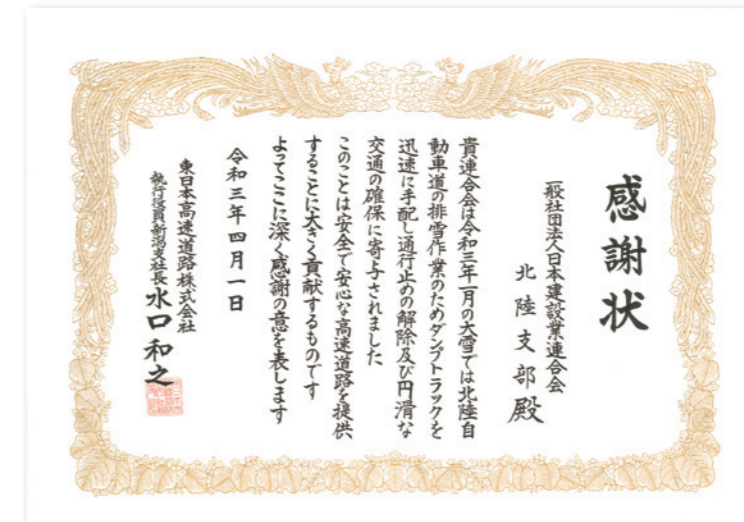 感謝状
一般社団法人日本建設業連合会
北陸支部殿
貴連合会は令和三年一月の大雪では北陸自
動車道の排雪作業のためダンプトラックを
迅速に手配し通行止めの解除及び円滑な
交通の確保に寄与されました
このことは安全で安心な高速道路を提供
することに大きく貢献するものです
よってここに深く感謝の意を表します
令和三年四月一日
東日本高速道路株式会社
執行役員新潟支社長水口和之